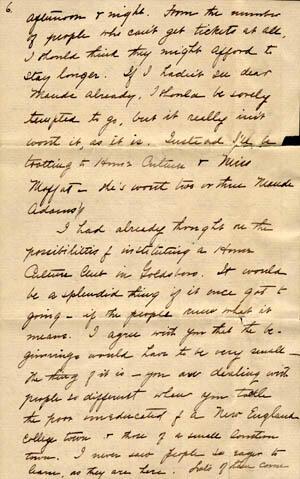 6.
afternoon & night. From the number
of people who can't get tickets at all,
I should think they might afford to
stay longer. If I hadn't seen dear
Maude already, I should be sorely
tempted to go, but it really isn't
worth it, as it is. Instead I'll be
trotting to Home Culture & Miss
Moffat – She's worth two or three Maude
Adams's!
I had already thought on the
possibilities of instituting a Home
Culture Club in Goldsboro. It would
be a splendid thing if it once got to
going – if the people knew what it
means. I agree with you that the be-
ginnings would have to be very small –
the thing of it is – you are dealing with
people so different when you take
the poor uneducated of a New England
College town & those of a small
town. I never saw people so eager to
learn, as they are here. Lots of them come